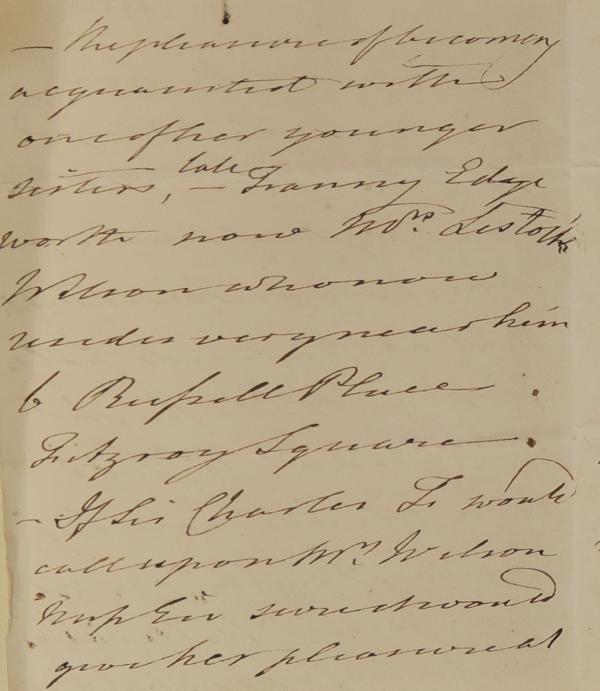 — the pleasure of becoming
acquainted with
one of her younger
sisters, late — Fanny Edge
worth now Mrs. Lestock
Wilson who now
resides very near him
6 Russell Place
Fitzroy Square
— If Sir Charles F. would
call upon Mrs. Wilson
Miss E is sure it would
give her pleasure at